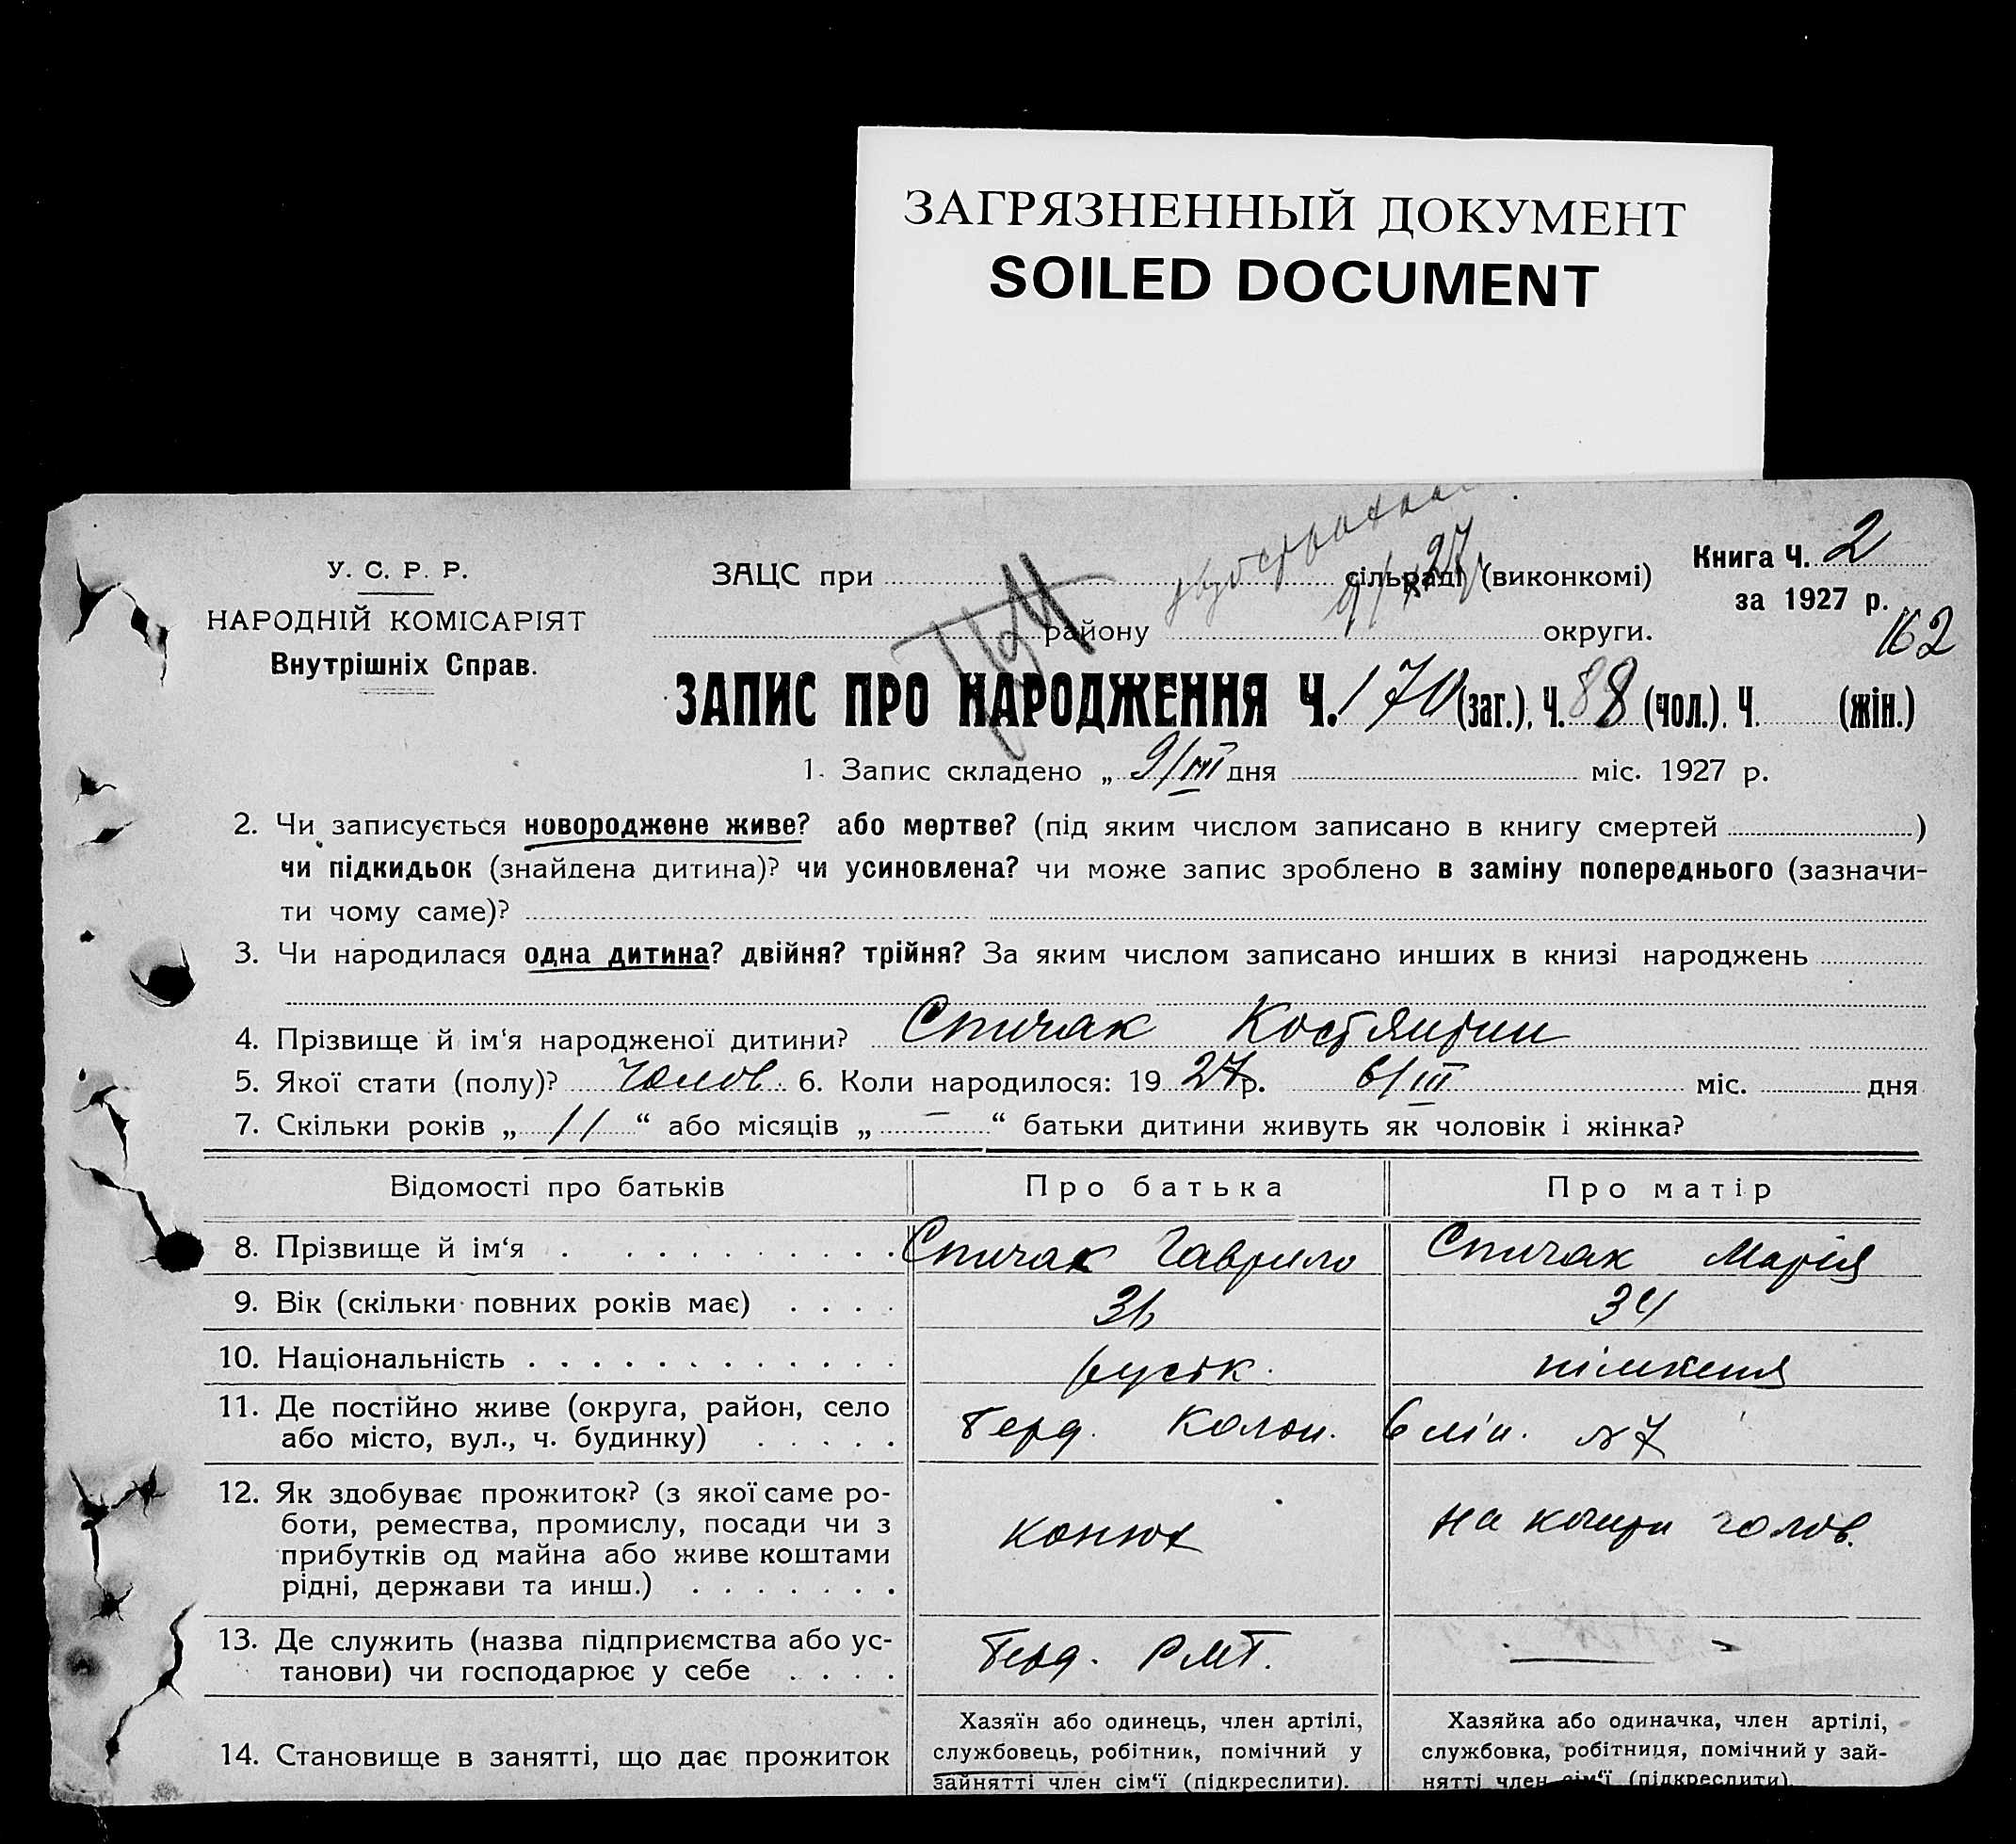 ЗАГРЯЗНЕННЫЙ ДОКУМЕНТ
SOILED DOCUMENT
У. С. Р. Р.
НАРОДНІЙ КОМІСАРІЯТ
Внутрішніх Справ.
ЗАЦС при сільраді (виконкомі)
району округи.
Книга Ч. 2
за 1927 р.
162
ЗАПИС ПРО НАРОДЖЕННЯ Ч. 170 (заг.), Ч. 88 (чол.). Ч. (жін.)
1. Запис складено „ 9/III дня міс. 1927 р.
2. Чи записується новороджене живе? або мертве? (під яким числом записано в книгу смертей )
чи підкидьок (знайдена дитина)? чи усиновлена? чи може запис зроблено в заміну попереднього (зазначи-
ти чому саме)?
3. Чи народилася одна дитина? двійня? трійня? За яким числом записано инших в книзі народжень
4. Прізвище й ім‘я народженої дитини? Спичак Костянтин
5. Якої стати (полу)? Чолов. 6. Коли народилося: 19 27 р. 6/III міс. дня
7. Скільки років „ 11 “ або місяців „ — “ батьки дитини живуть як чоловік і жінка?
Відомості про батьків Про батька Про матір
8. Прізвище й ім‘я Спичак Гаврило Спичак Марія
9. Вік (скільки повних років має) 36 34
10. Національність руськ. німкеня
11. Де постійно живе (округа, район, село
або місто, вул., ч. будинку) Берд. Колон. 6 лін. №7
12. Як здобуває прожиток? (з якої саме ро-
боти, ремества, промислу, посади чи з
прибутків од майна або живе коштами
рідні, держави та инш.) конюх на кошти чолов.
13. Де служить (назва підприємства або ус-
танови) чи господарює у себе Берд. РМТ. —
14. Становище в занятті, що дає прожиток
Хазяїн або одинець, член артілі,
службовець, робітник, помічний у
зайнятті член сім‘ї (підкреслити).
Хазяйка або одиначка, член артілі,
службовка, робітниця, помічний у зай-
нятті член сім‘ї (підкреслити).